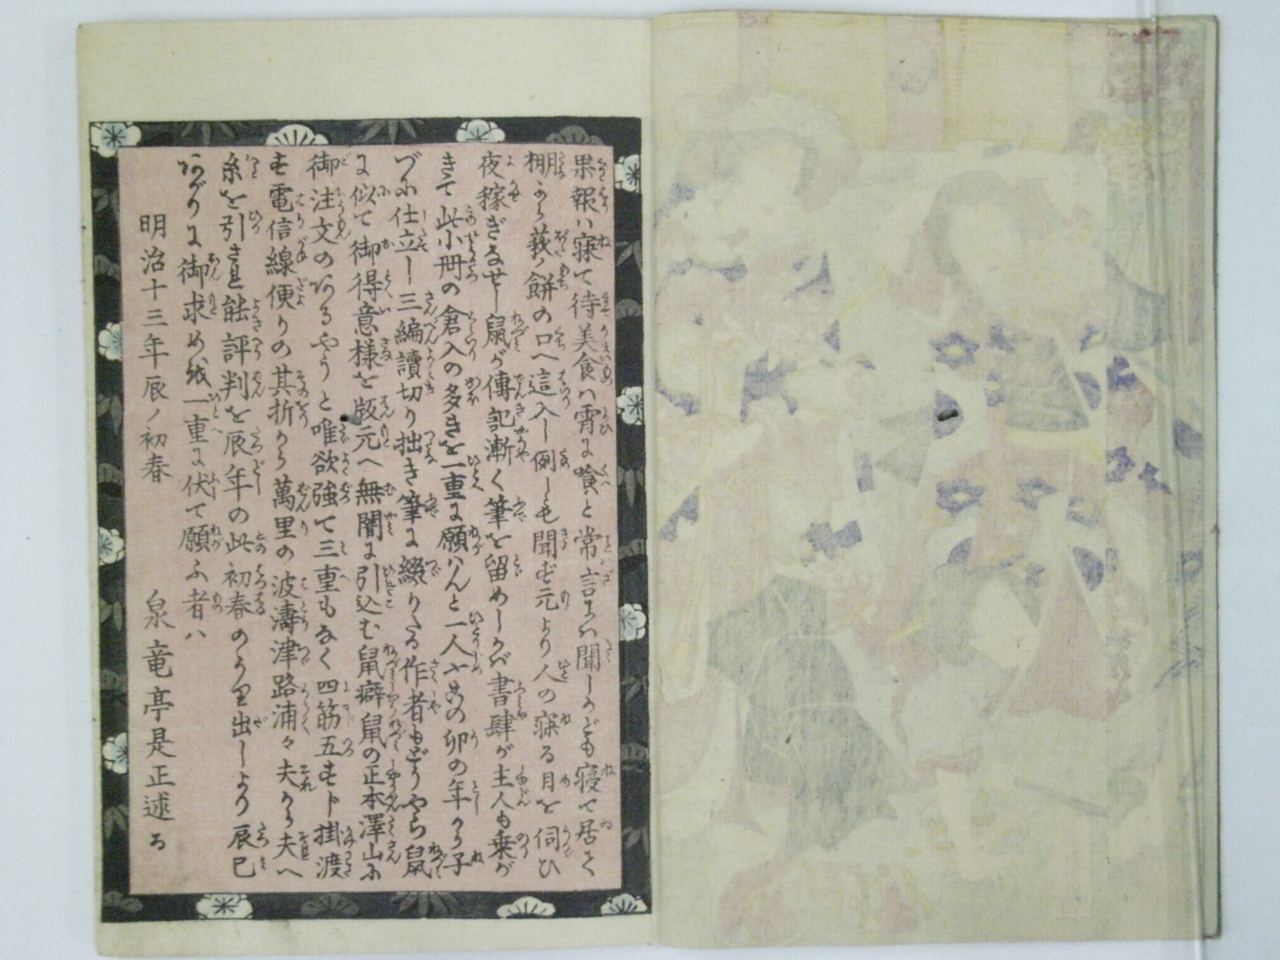 果報ハ寐て待美食ハ宵に喰へと常言にハ聞しかども寝て居て
棚から萩の餅の口へ這入し例しも聞ず元より人の寐る目を伺ひ
夜稼ぎなせし鼠が傳記漸く筆を留めしかバ書肆が主人も乗が
きて此小冊の倉入の多きを一重に願ハんと一人の卯の年から子
づに仕立し三編讀切り拙き筆に綴りたる作者もどうやら鼠
に似て御得意様を版元へ無闇に引込む鼠癖鼠の正本澤山に
御注文のあるやうと唯欲強て三重もなく四筋五すト掛渡
す電信線便りの其折から萬里の波濤津路浦々夫から夫へ
糸を引きて能評判を辰年の此初春のうり出しより辰巳
あがりに御求め越一重に伏て願ふ者ハ
明治十三年辰ノ初春
泉竜亭是正述る